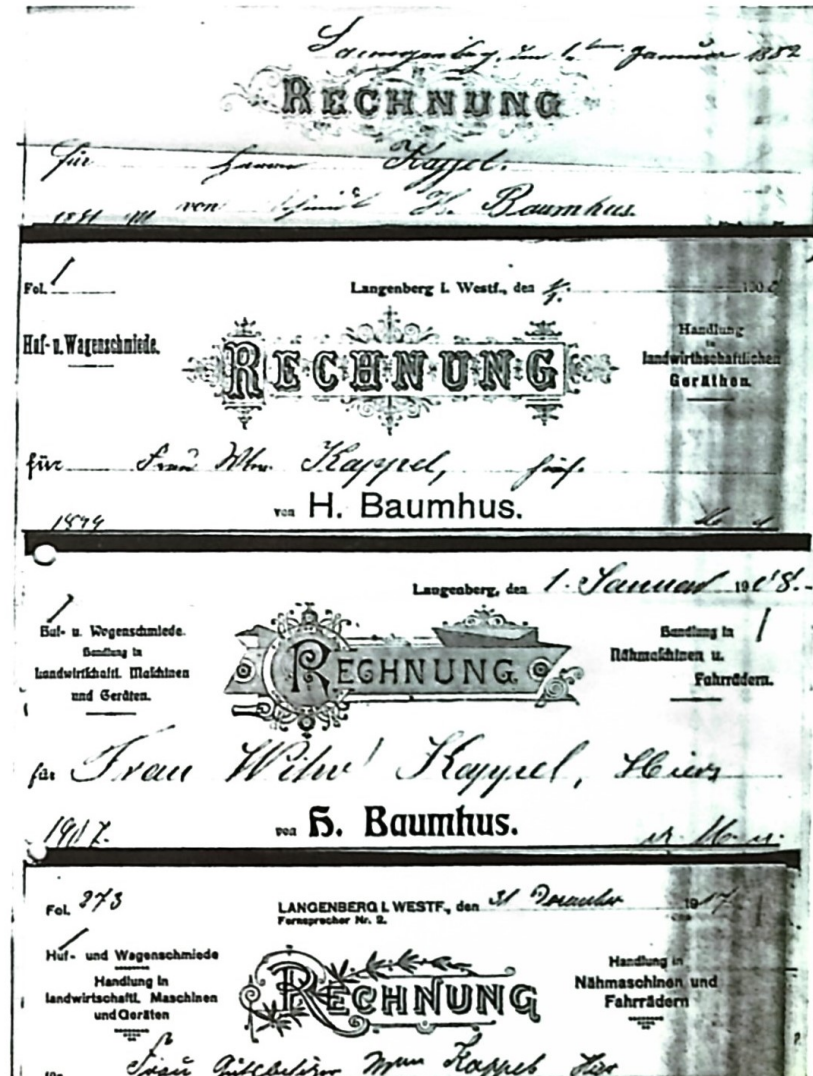 Langenberg, den 1. ten Januar 1882
RECHNUNG
für Herrn Kappel.
1881 von Schmied H. Baumhus.
Fol. 1 Langenberg i. Westf., den 190
Huf- u. Wagenschmiede.
RECHNUNG
Handlung
in
landwirthschaftlichen
Geräthen.
für Frau Wtw. Kappel, hier.
von H. Baumhus.
1899
Langenberg, den 1. Januar 1908.
Huf- u. Wagenschmiede.
Handlung in
landwirtschaftl. Maschinen
und Geräten.
RECHNUNG
Handlung in
Nähmaschinen u.
Fahrrädern.
für Frau Witw. Kappel, Hier
1907. von H. Baumhus.
Fol. 273 LANGENBERG I. WESTF., den 31 Dezember 1917
Fernsprecher Nr. 2.
Huf- und Wagenschmiede
Handlung in
landwirtschaftl. Maschinen
und Geräten
RECHNUNG
Handlung in
Nähmaschinen und
Fahrrädern
Frau Gutsbesitzer Wwe Kappel Hier